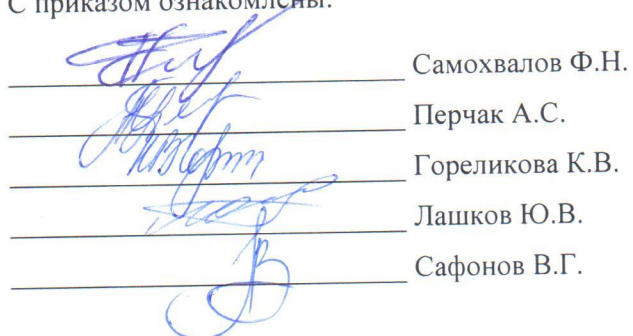 С приказом ознакомлены:
Самохвалов Ф.Н.
Перчак А.С.
Гореликова К.В.
Лашков Ю.В.
Сафонов В.Г.